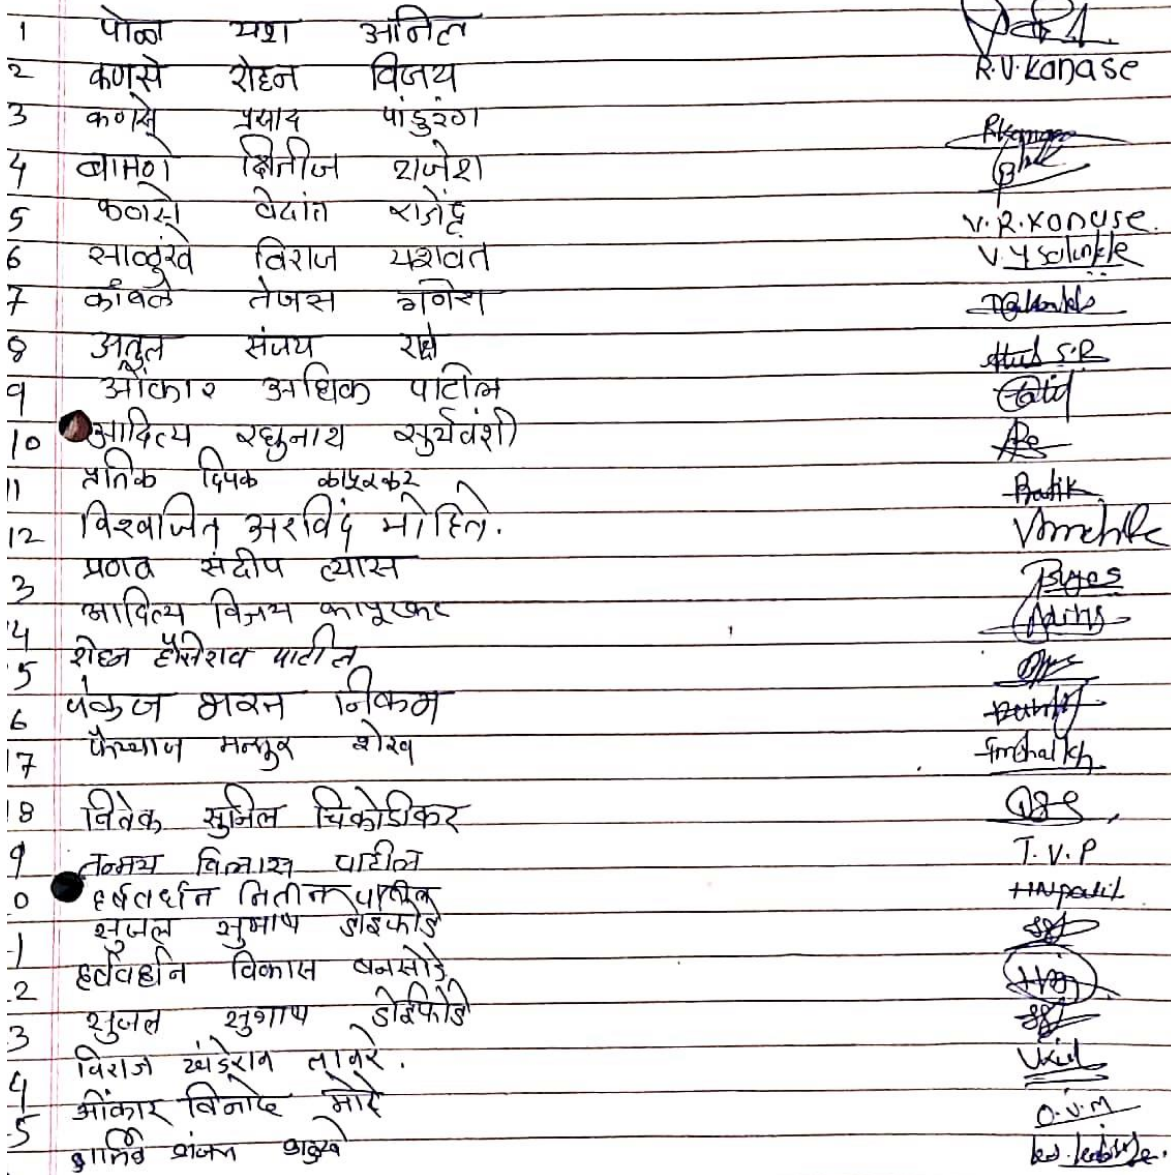 1 पोळ यश अनिल
2 कणसे रोहन विजय R.V.Kanase
3 कणसे प्रसाद पांडुरंग
4 बामणे क्षितीज राजेश
5 कणसे वेदांत राजेंद्र V.R.Kanase.
6 साळुंखे विराज यशवंत V.Y salunkhe
7 कांबळे तेजस गणेश
8 अतुल संजय Atul S.R
9 ओंकार अधिक पाटील Patil
10 आदित्य रघुनाथ सुर्यवंशी
11 प्रतिक दिपक कापूरकर Pratik
12 विश्वजित अरविंद मोहिते. VAmohite
3 प्रणव संदीप व्यास Vyas
4 आदित्य विजय कापूरकर
5 रोहन हौसेराव पाटील
6 पंकज भरत निकम Pankaj
17 फैय्याज मन्सुर शेख fmshaikh
18 विवेक सुनिल चिकोडीकर
9 तन्मय विलास पाटील T.V.P
0 हर्षवर्धन नितीन पाटील HNpatil
1 सुजल सुभाष डोईफोडे
2 हर्षवर्धन विकास बनसोडे
3 सुजल सुभाष डोईफोडे
4 विराज खंडेराव लावरे.
5 ओंकार विनोद मोरे O.V.M